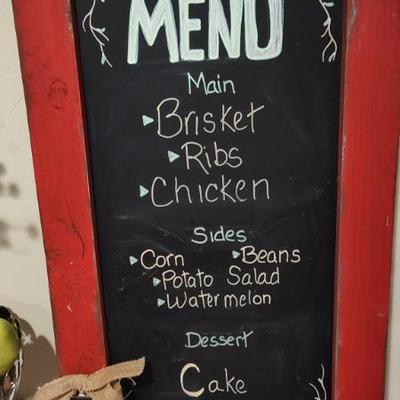 MENU
Main
Brisket
Ribs
Chicken
Sides
Corn Beans
Potato Salad
Watermelon
Dessert
Cake